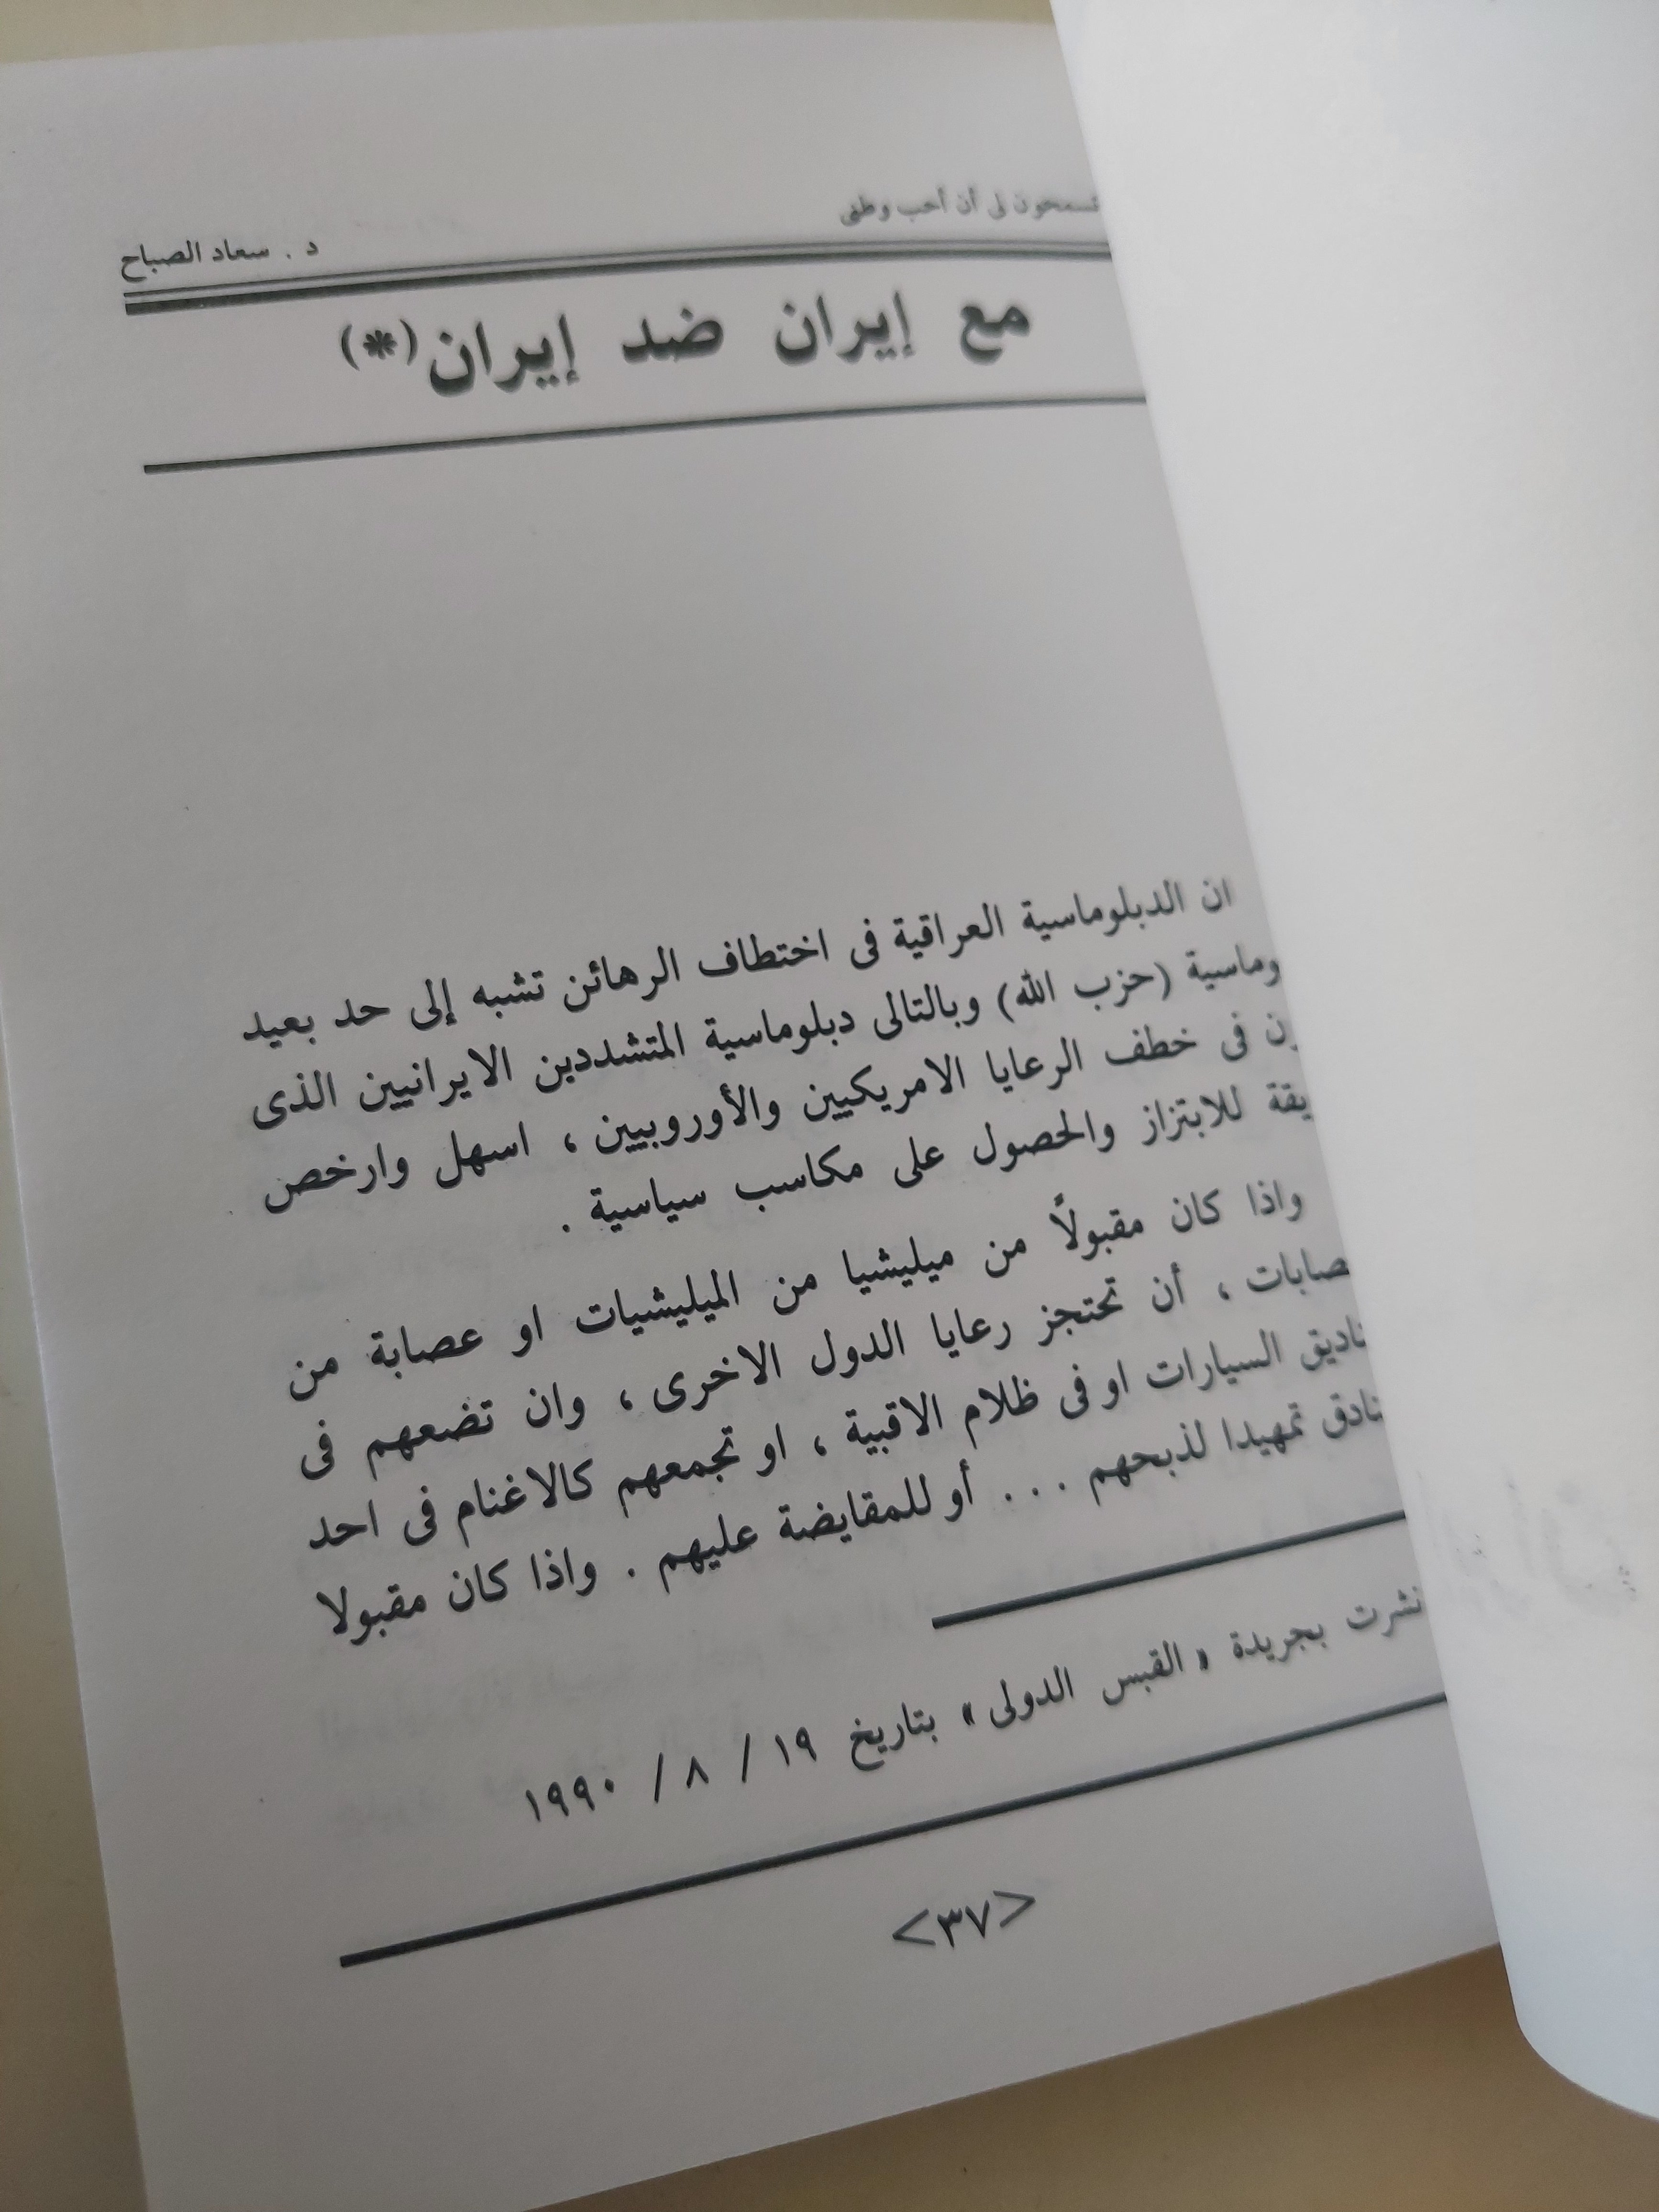 تسمحون لى أن أحب وطنى
د . سعاد الصباح
مع إيران ضد إيران (*)
ان الدبلوماسية العراقية فى اختطاف الرهائن تشبه إلى حد بعيد
وماسية (حزب الله) وبالتالى دبلوماسية المتشددين الايرانيين الذى
ون فى خطف الرعايا الامريكيين والأوروبيين ، اسهل وارخص
يقة للابتزاز والحصول على مكاسب سياسية .
واذا كان مقبولاً من ميليشيا من الميليشيات او عصابة من
صابات ، أن تحتجز رعايا الدول الاخرى ، وان تضعهم فى
ناديق السيارات او فى ظلام الاقبية ، او تجمعهم كالاغنام فى احد
نادق تمهيدا لذبحهم ... أو للمقايضة عليهم . واذا كان مقبولا
نشرت بجريدة « القبس الدولى » بتاريخ ١٩ / ٨ / ١٩٩٠
<٣٧>